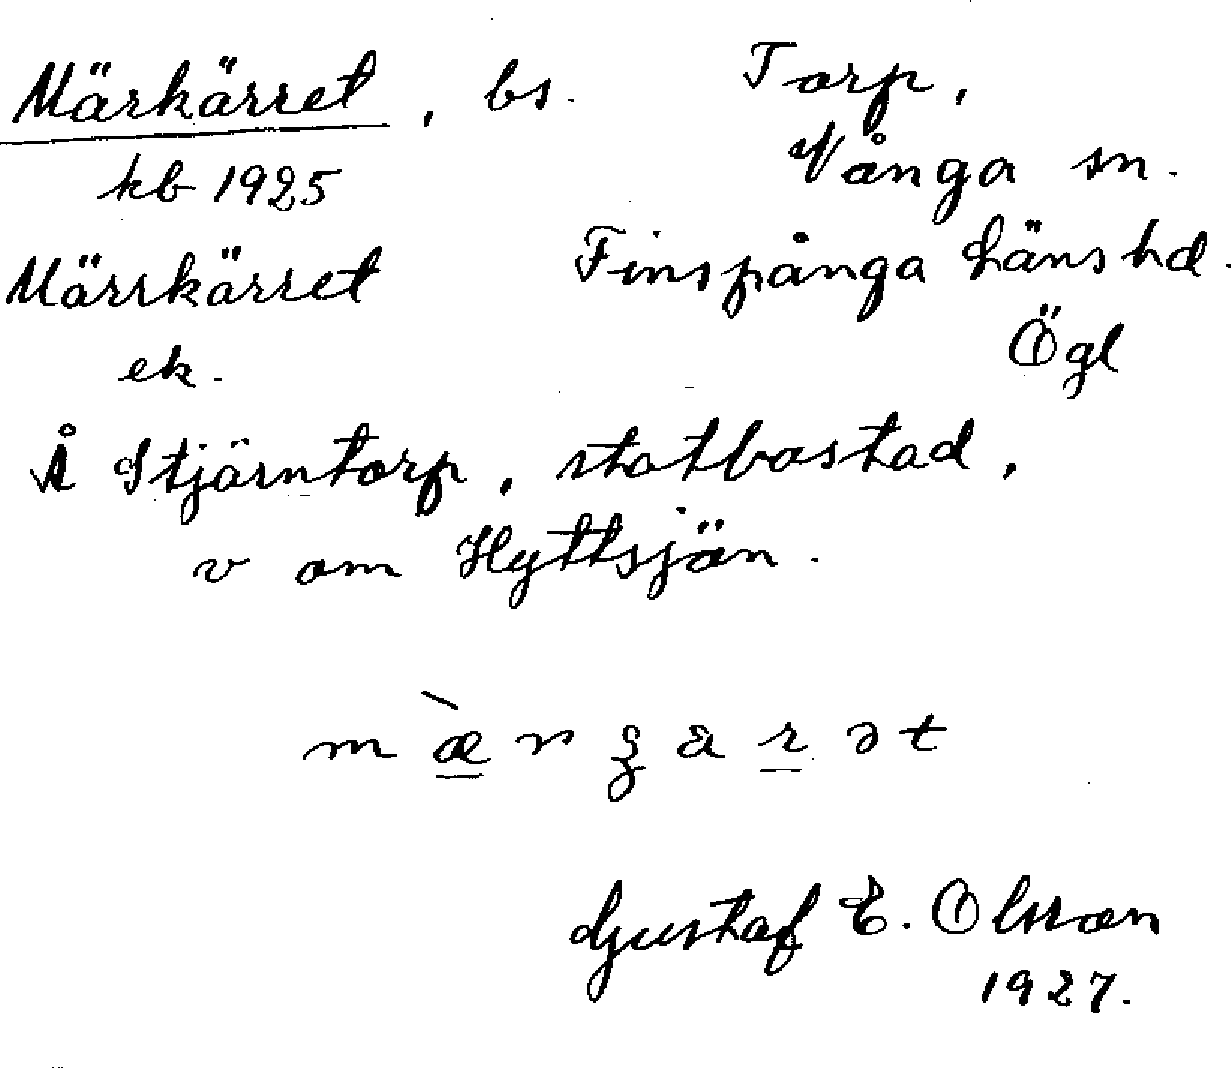 Märkärret, bs. Torp,
kb 1925 Vånga sn.
Märrkärret Finspånga länshd.
ek. Ögl
Å Stjärntorp, statbostad,
v om Hyttsjön.
Gustaf E. Olsson
1927.